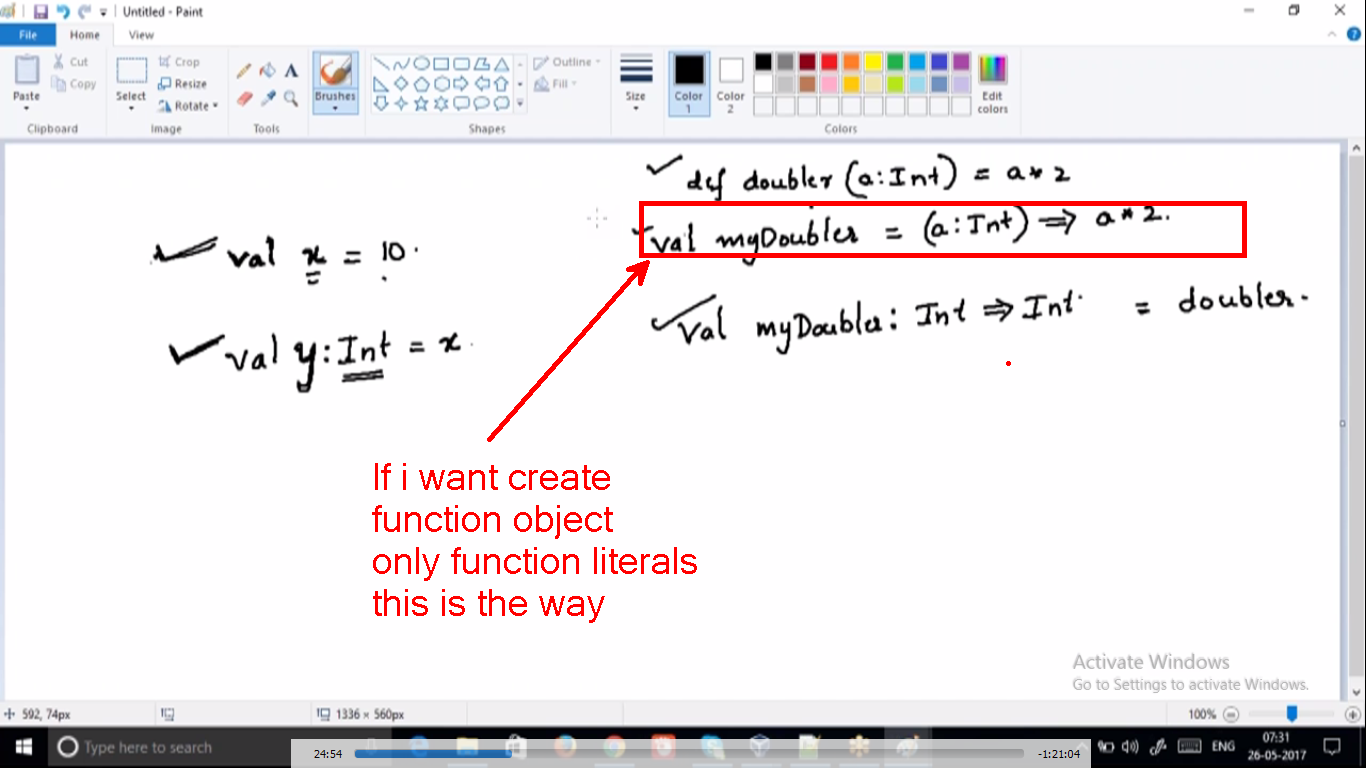 Untitled - Paint
File Home View
Paste
Cut
Copy
Clipboard
Select
Crop
Resize
Rotate
Image
A
Tools
Brushes
Outline
Fill
Shapes
Size
Color 1
Color 2
Edit colors
Colors
def doubler (a:Int) = a * 2
val myDoubler = (a:Int) => a * 2.
val x = 10.
val y: Int = x.
val myDoubler: Int => Int = doubler.
If i want create
function object
only function literals
this is the way
Activate Windows
Go to Settings to activate Windows.
592, 74px
1336 × 560px
100%
Type here to search
24:54
-1:21:04
ENG
07:31
26-05-2017